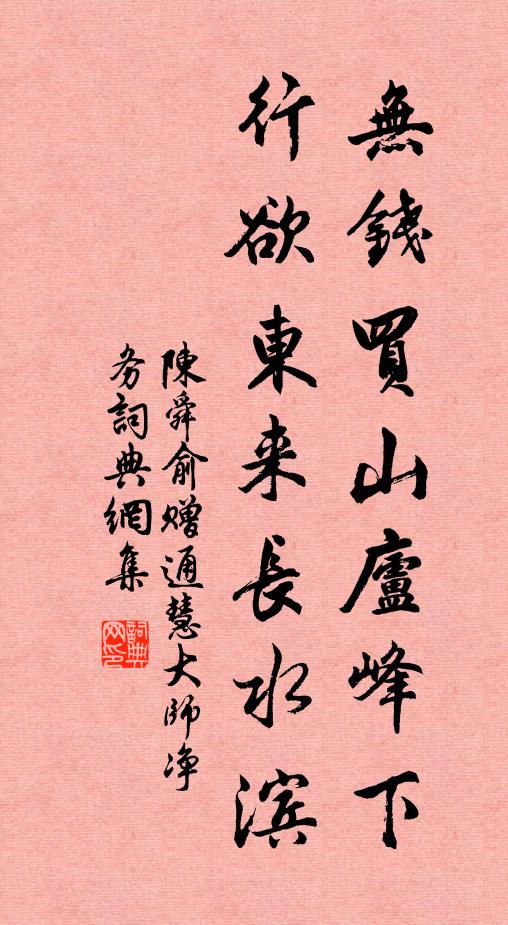 無錢買山廬峰下
行欲東来長水滨
陳舜俞赠通慧大師净
务詞典網集
詞典网印